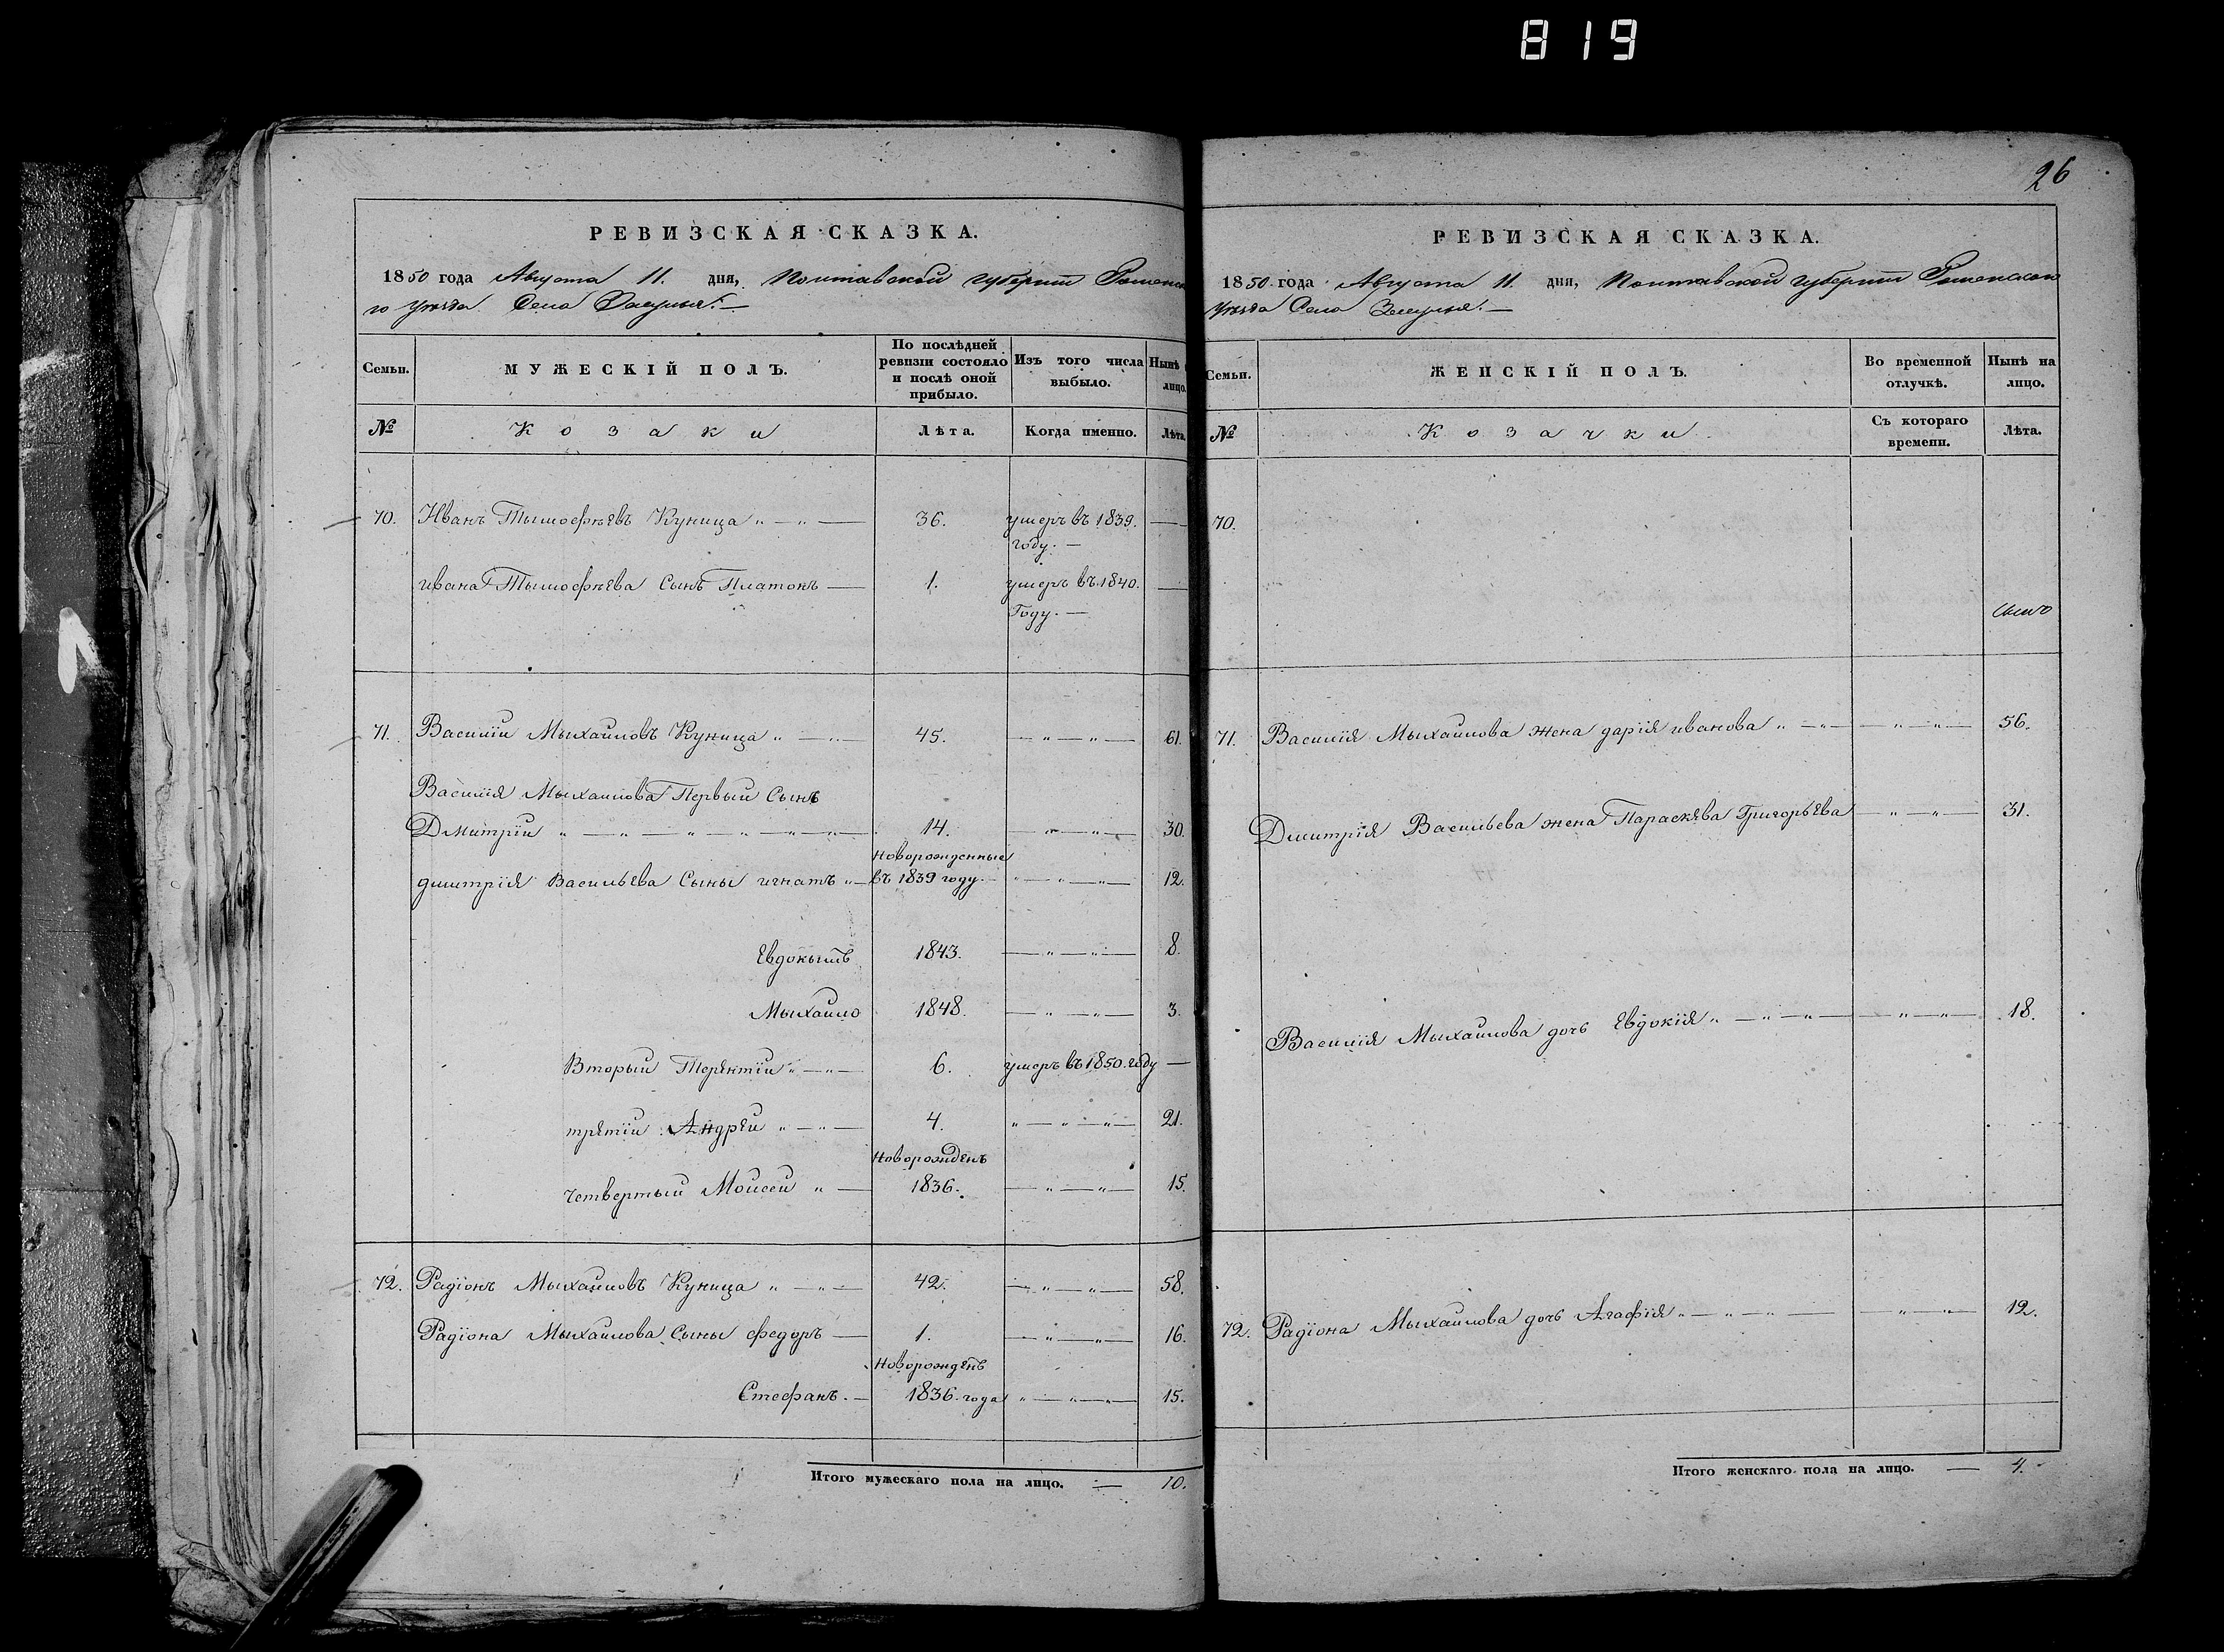 819
26
РЕВИЗСКАЯ СКАЗКА.
1850 года Августа 11. дня, Полтавской губерніи Роменска
го уѣзда Села
Семьи.
МУЖЕСКІЙ ПОЛЪ.
По послѣдней ревизіи состояло и послѣ оной прибыло.
Изъ того числа выбыло.
Нынѣ
лицо.
№
Козаки
Лѣта.
Когда именно.
Лѣта.
70. Иванъ Тымофѣевъ Куница „ — „ — 36. умеръ въ 1839. —
году. —
ивана Тымофѣева Сынъ Платонъ — 1. умеръ въ 1840. —
Году. —
71. Василій Мыхайловъ Куница „ — „ — 45. — „ — „ — 61.
Василія Мыхайлова Первый Сынъ
Дмитрій „ — „ — „ — „ — „ — „ 14. — „ — „ — 30.
Новорожденные
дмитрія Васильева Сыны игнатъ „ — въ 1839 году. „ — „ — „ — 12.
Евдокымъ 1843. — „ — „ — 8.
Мыхайло 1848. — „ — „ — 3.
Вторый Терентій „ — „ — 6. умеръ въ 1850. году —
третій Андрей „ — „ — 4. „ — „ — „ — 21.
Новорожденъ
четвертый Моисей „ — 1836. — „ — „ — 15.
72. Радіонъ Мыхайловъ Куница „ — „ — 42. — „ — „ — 58.
Радіона Мыхайлова Сыны федоръ — 1. — „ — „ — 16.
Новорожденъ
Стефанъ. — 1836. года „ — „ — „ — 15.
Итого мужескаго пола на лицо. — 10.
РЕВИЗСКАЯ СКАЗКА.
1850 года Августа 11. дня, Полтавской губерніи Роменского
уѣзда Села
Семьи.
ЖЕНСКІЙ ПОЛЪ.
Во временной отлучкѣ.
Нынѣ на лицо.
№
Козачки
Съ котораго времени.
Лѣта.
70.
71. Василія Мыхайлова жена дарія иванова „ — „ — „ — „ — 56.
Дмитрія Васильева жена Параскева Григорьева — „ — „ — 31.
Василія Мыхайлова дочь Евдокія „ — „ — „ — „ — „ — 18.
72. Радіона Мыхайлова дочь Агафія „ — „ — „ — — „ — „ — 12.
Итого женскаго пола на лицо. — 4.